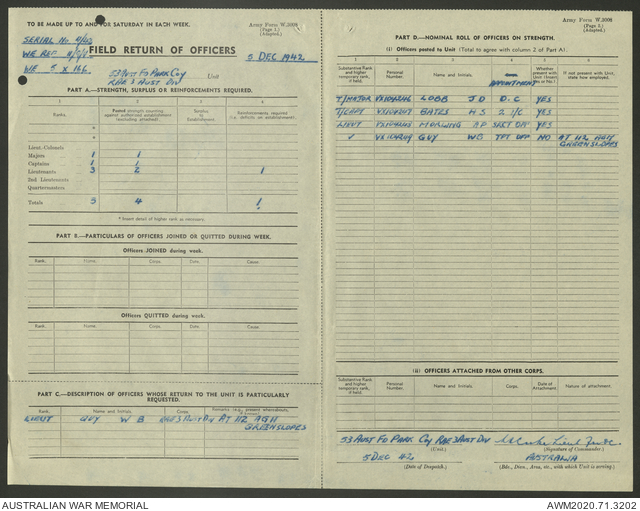 TO BE MADE UP TO AND FOR SATURDAY IN EACH WEEK.
Army Form W.3008
(Page 1.)
(Adapted.)
SERIAL No 4/03
WE REF
WE 5 x 166
FIELD RETURN OF OFFICERS
5 DEC 1942
53 AUST FD PARK COY
RAE 3 AUST DIV
Unit
PART A.—STRENGTH, SURPLUS OR REINFORCEMENTS REQUIRED.
1 2 3 4
Ranks.
Posted strength counting against authorized establishment (excluding attached).
Surplus to Establishment.
Reinforcements required (i.e. deficits on establishment).
Lieut.-Colonels
Majors 1 1
Captains 1 1
Lieutenants 3 2 1
2nd Lieutenants
Quartermasters
Totals 5 4 1
* Insert detail of higher rank as necessary.
PART B.—PARTICULARS OF OFFICERS JOINED OR QUITTED DURING WEEK.
Officers JOINED during week.
Rank. Name. Corps. Date. Cause.
Officers QUITTED during week.
Rank. Name. Corps. Date. Cause.
PART C.—DESCRIPTION OF OFFICERS WHOSE RETURN TO THE UNIT IS PARTICULARLY REQUESTED.
Rank. Name and Initials. Corps. Remarks (e.g., present whereabouts,
LIEUT GUY W B RAE 3 AUST DIV AT 112 AGH
GREENSLOPES
Army Form W.3008
(Page 2.)
(Adapted.)
PART D.—NOMINAL ROLL OF OFFICERS ON STRENGTH.
(i) Officers posted to Unit (Total to agree with column 2 of Part A).
1 2 3 4 5 6
Substantive Rank and higher temporary rank, if held.
Personal Number.
Name and Initials.
APPOINTMENT
Whether present with Unit (insert Yes or No.)
If not present with Unit, state how employed.
T/MAJOR LOBB J D O.C YES
T/CAPT BATES H S 2 I/C YES
LIEUT A P SECT OFF YES
GUY WB TPT OFF NO AT 112 AGH
GREENSLOPES
(ii) OFFICERS ATTACHED FROM OTHER CORPS.
Substantive Rank and higher temporary rank, if held.
Personal Number.
Name and Initials.
Corps.
Date of Attachment.
Nature of attachment.
53 AUST FD PARK COY RAE 3 AUST DIV
(Unit.)
(Signature of Commander.)
5 DEC 42
AUSTRALIA
(Date of Despatch.)
(Bde., Divn., Area, etc., with which Unit is serving.)
AUSTRALIAN WAR MEMORIAL
AWM2020.71.3202